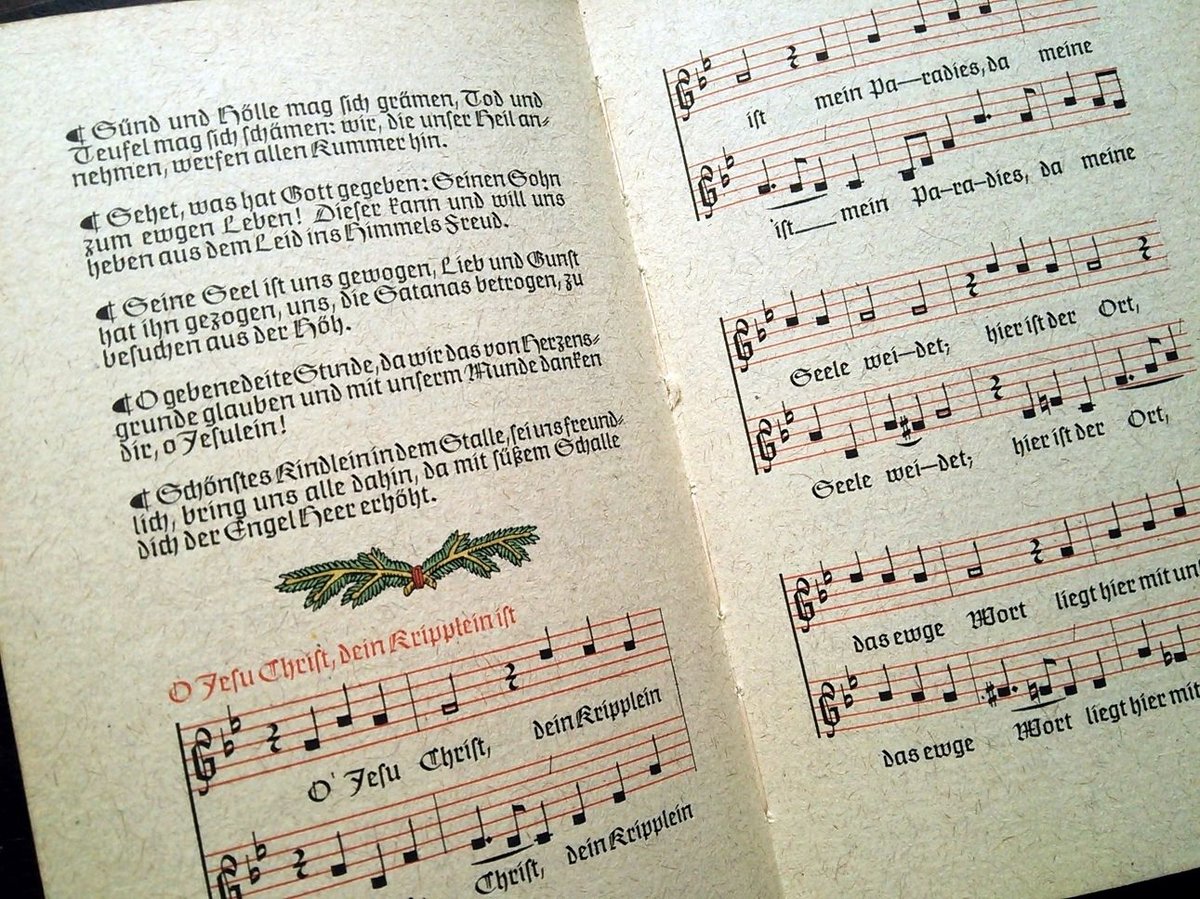 ¶ Sünd und Hölle mag sich grämen, Tod und
Teufel mag sich schämen: wir, die unser Heil an-
nehmen, werfen allen Kummer hin.
¶ Sehet, was hat Gott gegeben: Seinen Sohn
zum ewgen Leben! Dieser kann und will uns
heben aus dem Leid ins Himmels Freud.
¶ Seine Seel ist uns gewogen, Lieb und Gunst
hat ihn gezogen, uns, die Satanas betrogen, zu
besuchen aus der Höh.
¶ O gebenedeite Stunde, da wir das von Herzens-
grunde glauben und mit unserm Munde danken
dir, o Jesulein!
¶ Schönstes Kindlein in dem Stalle, sei uns freund-
lich, bring uns alle dahin, da mit süßem Schalle
dich der Engel Heer erhöht.
O Jesu Christ, dein Kripplein ist
O Jesu Christ, dein Kripplein
Christ, dein Kripplein
ist mein Pa–radies, da meine
ist mein Pa-ra-dies, da meine
Seele wei–det; hier ist der Ort,
Seele wei–det; hier ist der Ort,
das ewge Wort liegt hier mit
das ewge Wort liegt hier mit